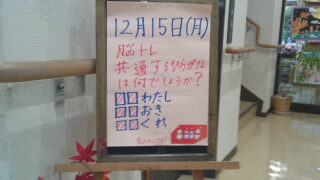 12月15日(月)
脳トレ
共通するひらがな
は何でしょうか?
□□わたし
□□おき
□□ぐれ